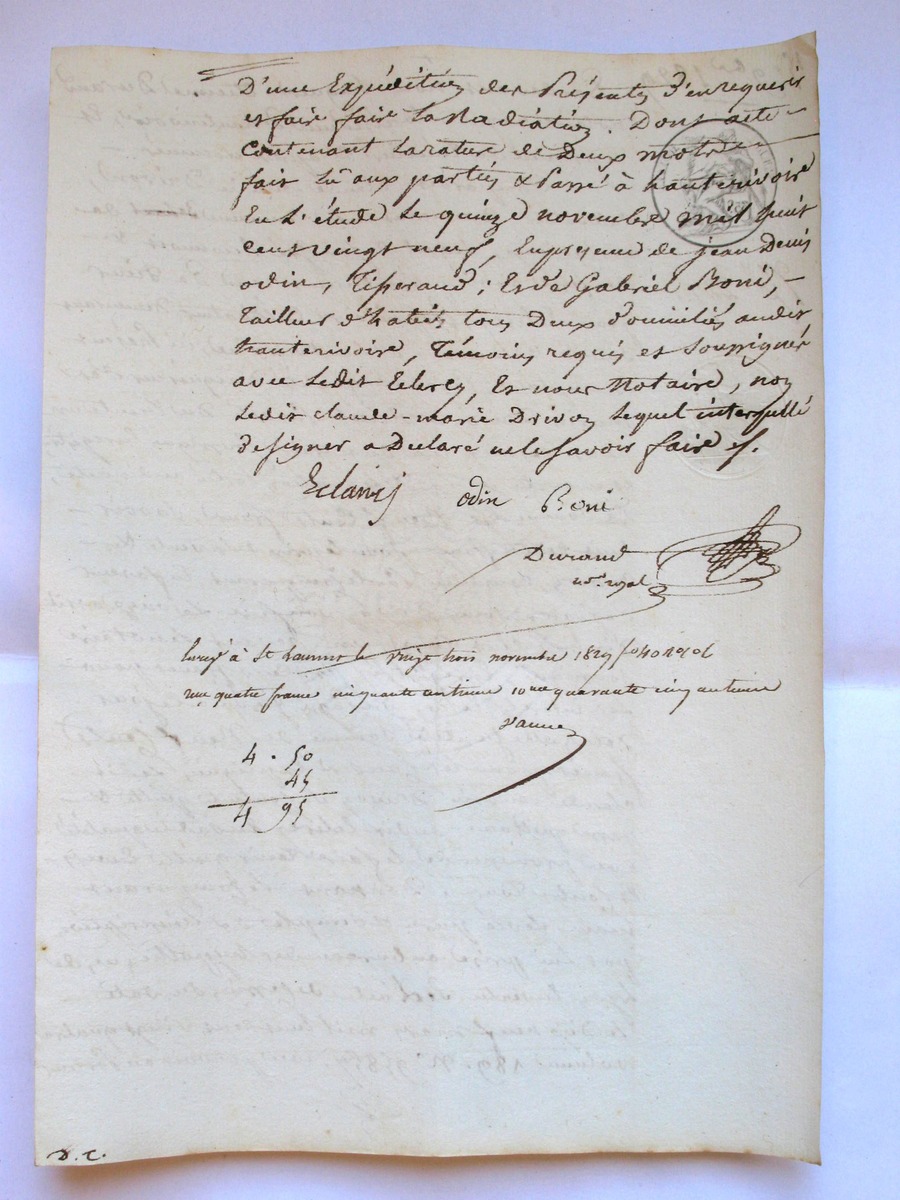 D'une Expédition des Présentes d'en requerir
et faire faire la Radiation. Dont acte
contenant la rature de Deux mots
fait lû aux parties & Passé à hauterivoire
En l'étude le quinze novembre mil huit
cent vingt neuf, En presence de jean Denis
odin, Tisserand; Et de Gabriel Boni,
Tailleur d'habits tous Deux domiciliés audit
hauterivoire, Témoins requis et soussignés
avec ledit Eclercy, Et nous Notaire, non
ledit claude-marie Drivon lequel interpellé
de signer a Declaré ne le savoir faire /.
odin Boni
Durand
nre. royal
à St Laurent le vingt trois novembre 1829 fo 40
quatre francs cinquante centimes 10me quarante cinq centimes
4 . 50
45
4 95
D. C.